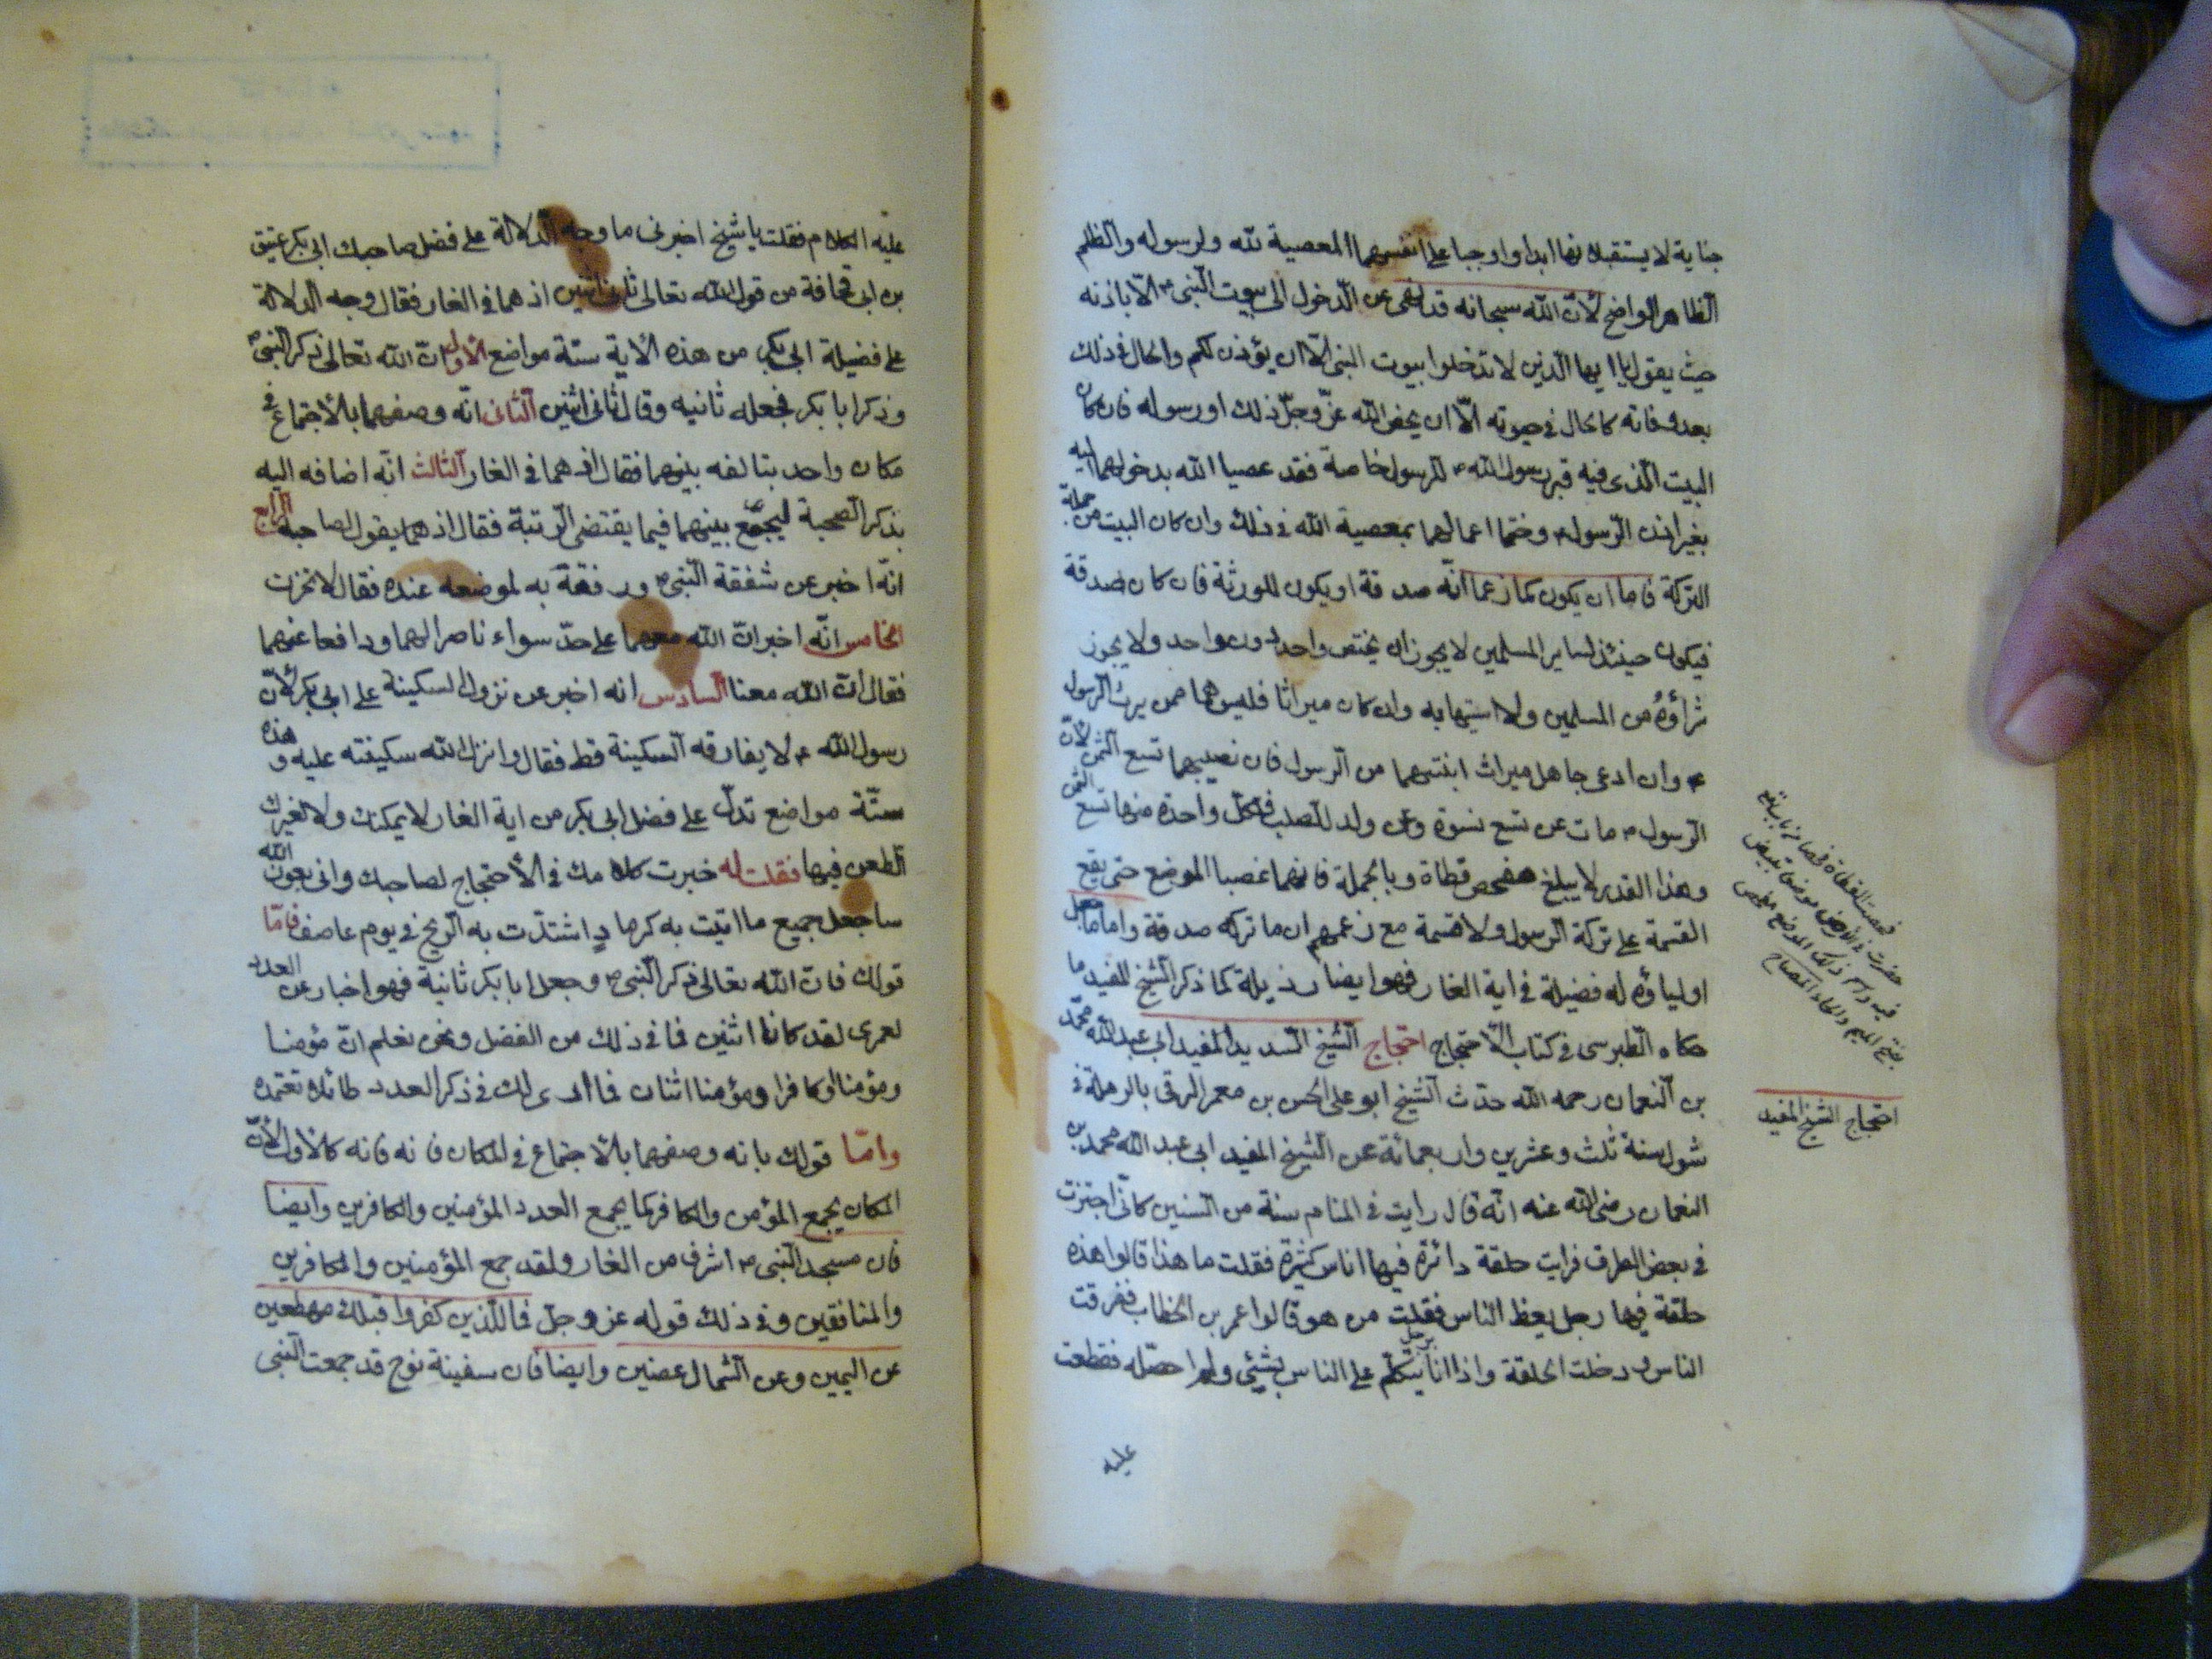 جناية لا يستقيلانها ابدا واوجبا على انفسهما المعصية لله ولرسوله والظلم
الظاهر الواضح لأن الله سبحانه قد نهى عن الدخول الى بيوت النبى الا باذنه
حيث يقول يا ايها الذين لا تدخلوا بيوت النبى الا ان يؤذن لكم والحال فى ذلك
بعد وفاته كالحال فى حيوته الا ان يخص الله عز وجل ذلك او رسوله فان كان
البيت الذى فيه قبر رسول الله للرسول خاصة فقد عصيا الله بدخولهما اليه
بغير اذن الرسول وختما اعمالهما بمعصية الله فى ذلك وان كان البيت من جملة
التركة فاما ان يكون كما زعما انه صدقة او يكون للورثة فان كان صدقة
فيكون حينئذ لساير المسلمين لا يجوز ان يختص واحد دون واحد ولا يجوز
شراؤه من المسلمين ولا استيهابه وان كان ميراثا فليس هما ممن يرث الرسول
وان ادعى جاهل ميراث ابنتيهما من الرسول فان نصيبهما تسع الثمن لأن
الرسول مات عن تسع نسوة وعن ولد للصلب فلكل واحدة منها تسع الثمن
وهذا القدر لا يبلغ مفحص قطاة وبالجملة فانهما غصبا الموضع حتى يقع
القسمة على تركة الرسول ولا قسمة مع زعمهم ان ما تركه صدقة واما ما جعل
اولياؤه له فضيلة فى اية الغار فهو ايضا رذيلة كما ذكر الشيخ المفيد ما
حكاه الطبرسى فى كتاب الأحتجاج احتجاج الشيخ السديد المفيد ابى عبد الله محمد
بن النعمان رحمه الله حدث الشيخ ابو على الحسن بن معمر الرقى بالرملة فى
شوال سنة ثلث وعشرين واربعمائة عن الشيخ المفيد ابى عبد الله محمد بن
النعمان رضى الله عنه انه قال رايت فى المنام سنة من السنين كانى اجتزت
فى بعض الطرق فرايت حلقة دائرة فيها اناس كثيرة فقلت ما هذا قالوا هذه
حلقة فيها رجل يعظ الناس فقلت من هو قالوا عمر بن الخطاب ففرقت
الناس ودخلت الحلقة واذا انا برجل يتكلم على الناس بشئ ولم احصله فقطعت
عليه
احتجاج الشيخ المفيد
عليه الكلام فقلت يا شيخ اخبرنى ما وجه الدلالة على فضل صاحبك ابى بكر عتيق
بن ابى قحافة من قول الله تعالى ثانى اثنين اذ هما فى الغار فقال وجه الدلالة
على فضيلة ابى بكر من هذه الأية ستة مواضع الأول ان الله تعالى ذكر النبى
وذكر ابا بكر فجعله ثانيه وقال ثانى اثنين الثانى انه وصفهما بالأجتماع فى
مكان واحد بتالفه بينهما فقال اذ هما فى الغار الثالث انه اضافه اليه
بذكر الصحبة ليجمع بينهما فيما يقتضى الرتبة فقال اذ يقول لصاحبه الرابع
انه اخبر عن شفقة النبى ورفقة به لموضعه عنده فقال لا تحزن
الخامس انه اخبر ان الله معهما على حد سواء ناصرا لهما ودافعا عنهما
فقال ان الله معنا السادس انه اخبر عن نزول السكينة على ابى بكر لأن
رسول الله لا يفارقه السكينة قط فقال وانزل الله سكينته عليه وهذه
ستة مواضع تدل على فضل ابى بكر من اية الغار لا يمكنك ولا لغيرك
الطعن فيها فقلت له خبرت كلامك فى الأحتجاج لصاحبك وانى بعون الله
ساجعل جميع ما اتيت به كرماد اشتدت به الريح فى يوم عاصف فاما
قولك فان الله تعالى ذكر النبى وجعل ابا بكر ثانية فهو اخبار عن العدد
لعمرى لقد كانا اثنين فما فى ذلك من الفضل ونحن نعلم ان مؤمنا
ومؤمنا او كافرا ومؤمنا اثنان فما ارى لك فى ذكر العدد طائلا تعتمده
واما قولك بانه وصفهما بالأجتماع فى المكان فانه فانه كالأول لأن
المكان يجمع المؤمن والكافر كما يجمع العدد المؤمنين والكافرين وايضا
فان مسجد النبى اشرف من الغار ولقد جمع المؤمنين والكافرين
والمنافقين وفى ذلك قوله عز وجل فما للذين كفروا قبلك مهطعين
عن اليمين وعن الشمال عضين وايضا فان سفينة نوح قد جمعت النبى